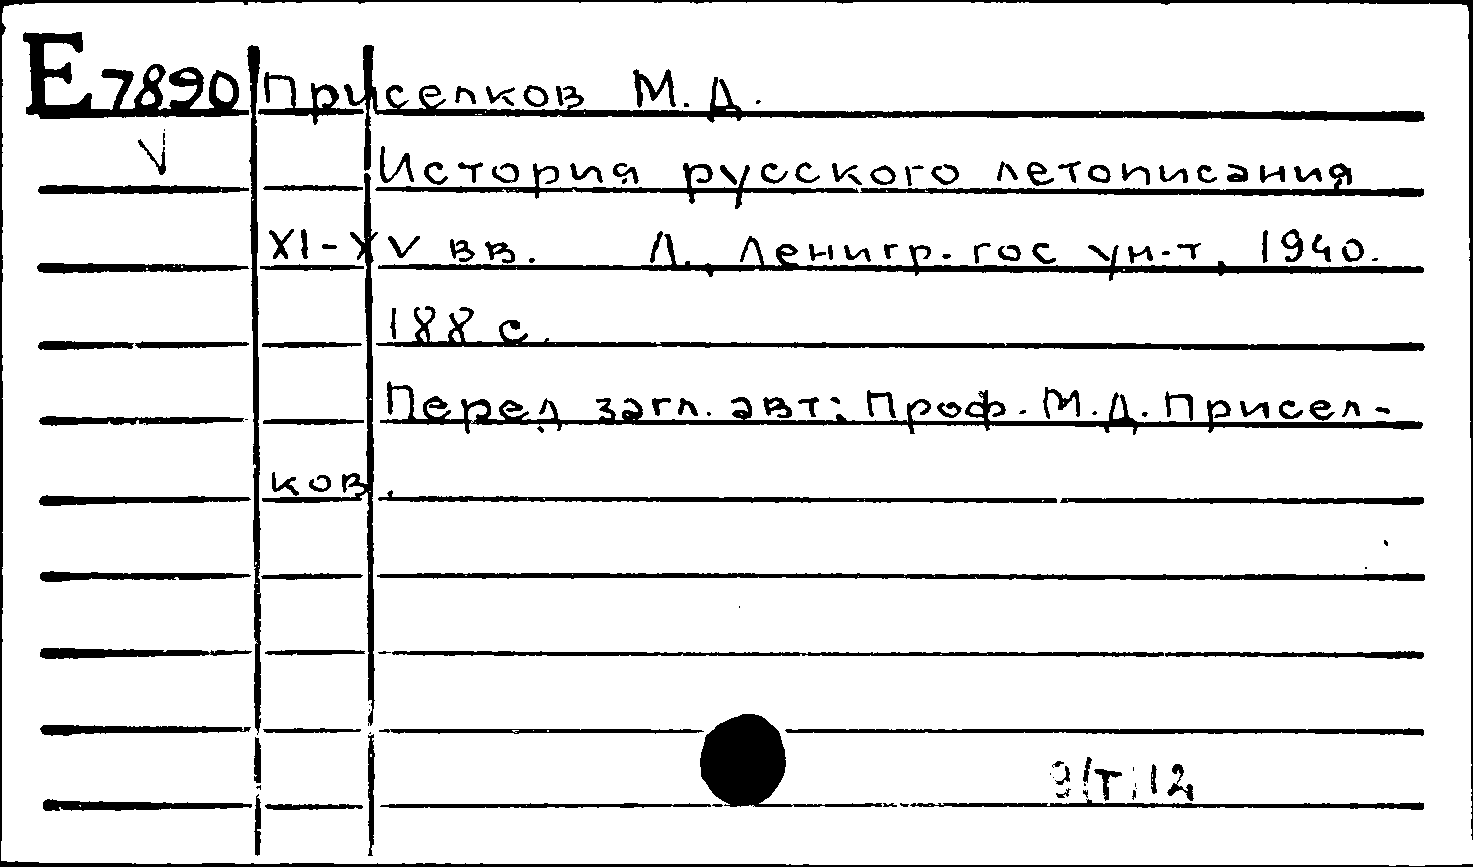 E7890 Приселков М. Д.
V
История русского летописания
XI-XV вв. Л., Ленигр. гос ун-т, 1940.
188 с.
Перед загл. авт: Проф. М. Д. Присел-
ков.
9(Т)12